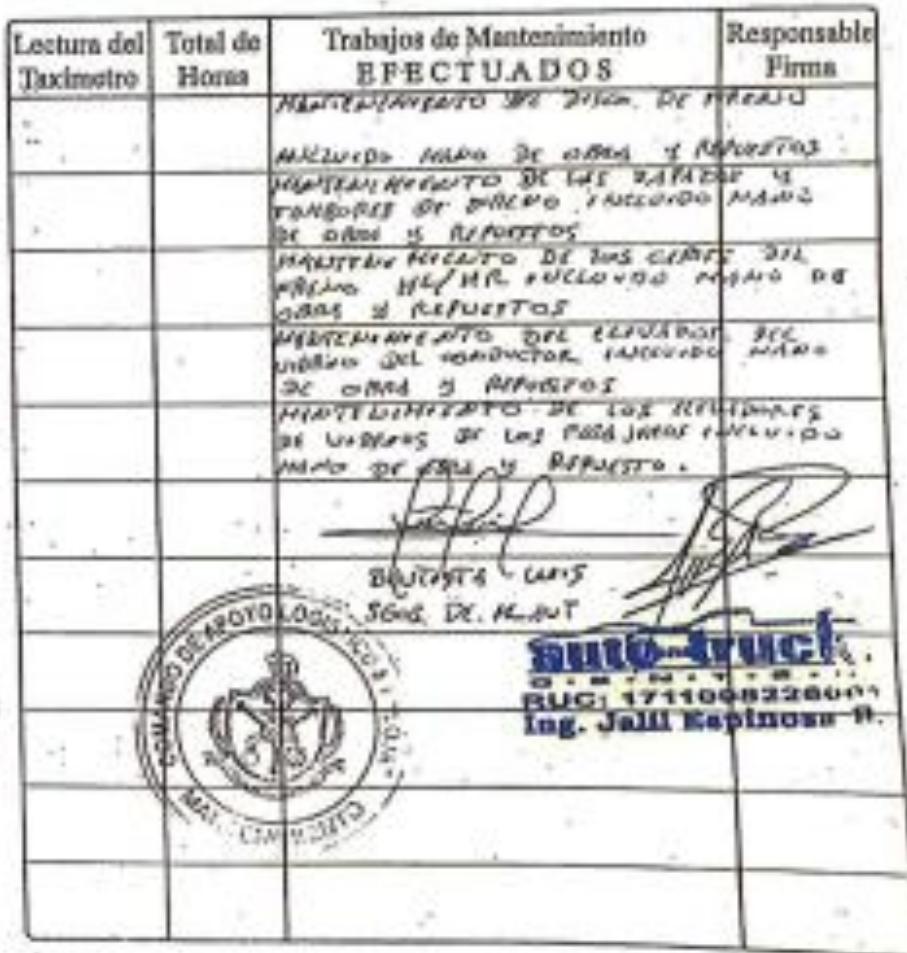 Lectura del Taximetro
Total de Horas
Trabajos de Mantenimiento
EFECTUADOS
Responsable Firma
MANTENIMIENTO DE DISCO DE FRENO
INCLUIDO MANO DE OBRA Y REPUESTOS
MANTENIMIENTO DE LAS ZAPATAS Y
TAMBORES DE FRENO INCLUIDO MANO
DE OBRA Y REPUESTOS
MANTENIMIENTO DE LOS DEL
FRENO INCLUIDO MANO DE
OBRA Y REPUESTOS
MANTENIMIENTO DEL ELEVADOR DEL
VIDRIO DEL CONDUCTOR INCLUIDO MANO
DE OBRA Y REPUESTOS
MANTENIMIENTO DE LOS ELEVADORES
DE VIDRIOS DE LOS PASAJEROS INCLUIDO
MANO DE OBRA Y REPUESTO.
LUIS
SGOS. DE.
COMANDO DE APOYO LOGISTICO
auto-truck
RUC: 1711008226001
Ing. Jalil Espinosa R.